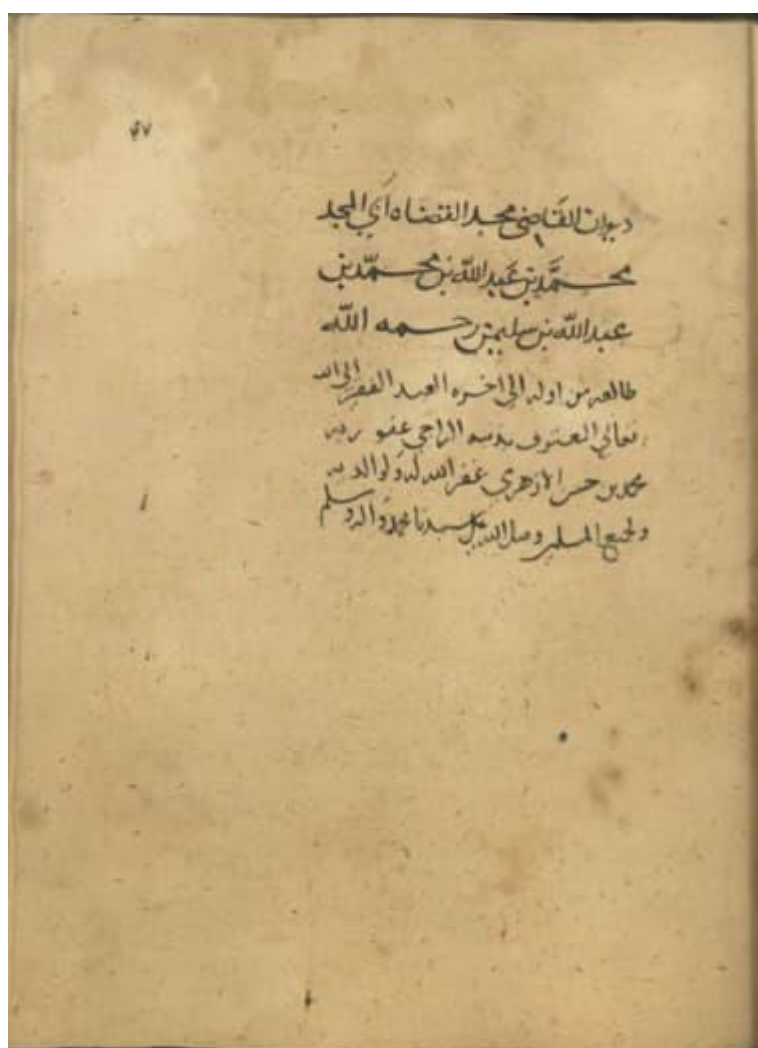 ٤٧
ديوان القَاضي مجد القضاه أبي المجد
محمَّد بن عَبد اللّه بن محمّد بن
عبد اللّه بن سليمن رحمه اللّه
طالعه من اوله الى اخره العبد الفقير الى الله
تعالى المعترف بذنبه الراجي عفو ربه
محمد بن حسن الازهري غفر الله له ولوالديه
ولجميع المسلمين وصلى الله على سيدنا محمد واله وسلم